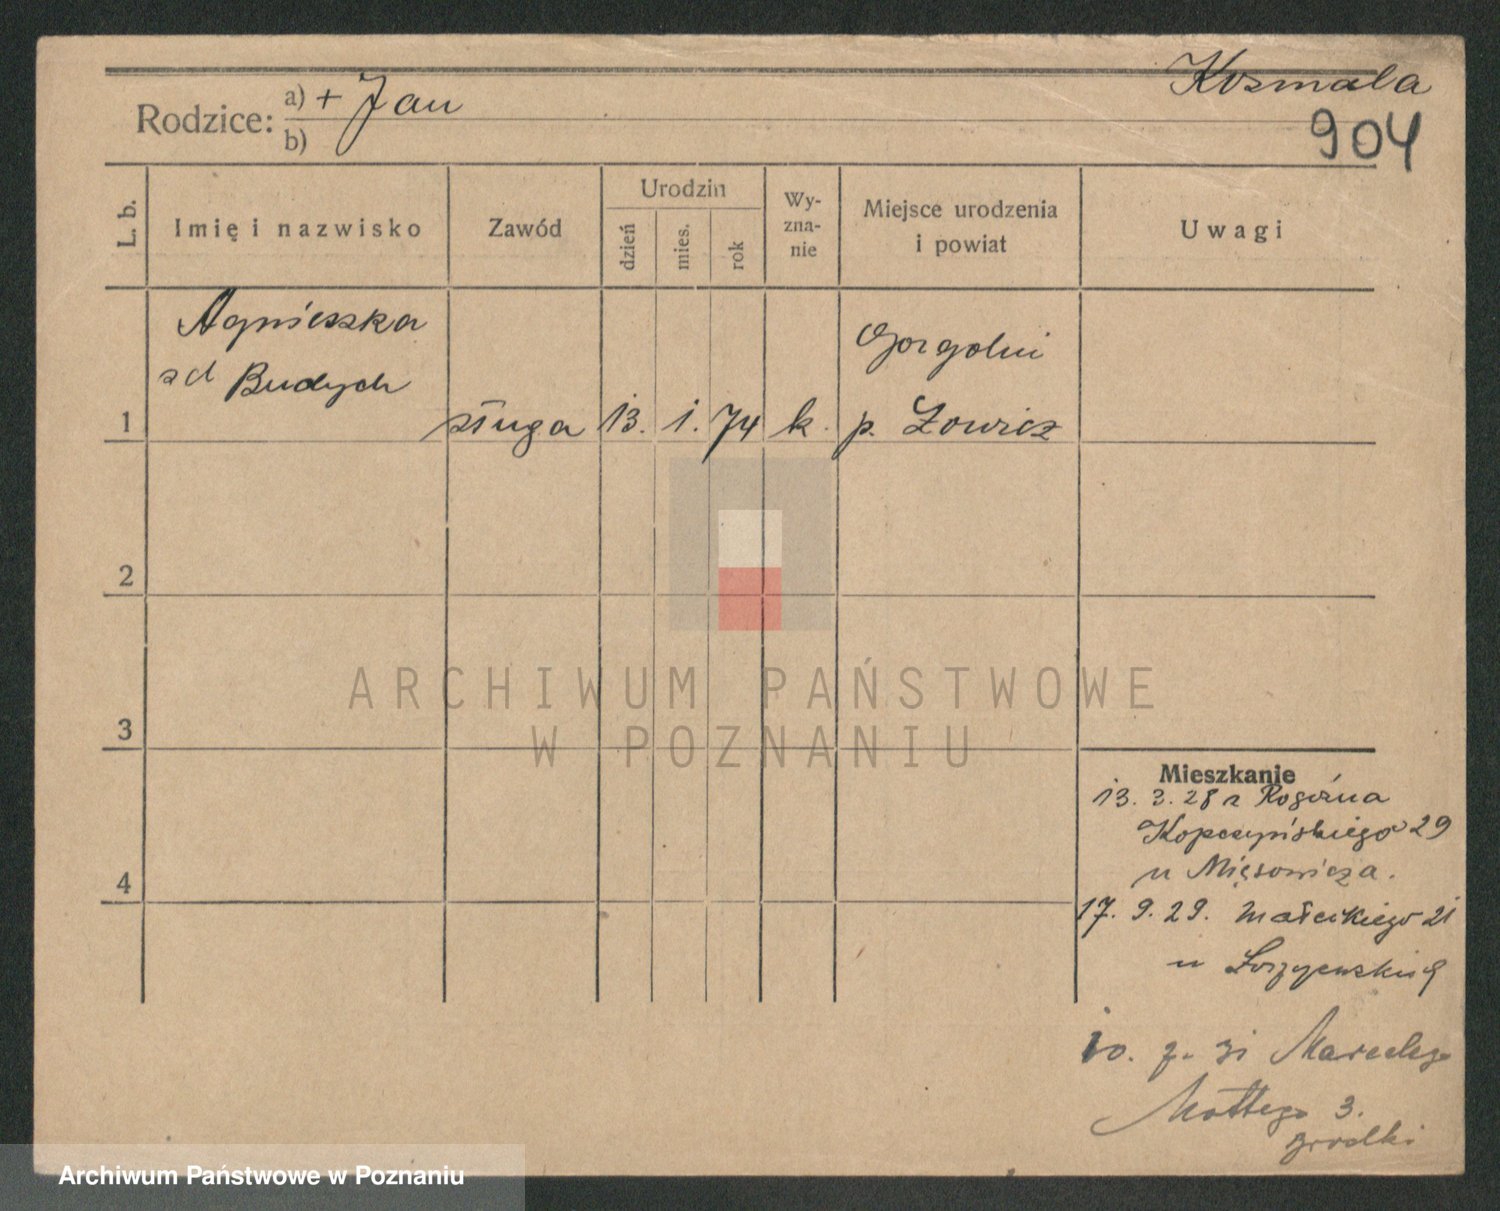 Kozmala
Rodzice: a) + Jan
b)
904
L. b.
Imię i nazwisko
Zawód
Urodzin
dzień
mies.
rok
Wy-
zna-
nie
Miejsce urodzenia
i powiat
Uwagi
Agnieszka
zd Budych
Gorgolni
1 sługa 13. 1. 74 k. p. Łowicz
2
3
4
Mieszkanie
13. 3. 28 z Rogoźna
Kopczyńskiego 29
u Mięsowicza.
17. 9. 29. Małeckiego 21
u
10. 7. 31 Marcelego
Mottego 3.
ARCHIWUM PAŃSTWOWE
W POZNANIU
Archiwum Państwowe w Poznaniu